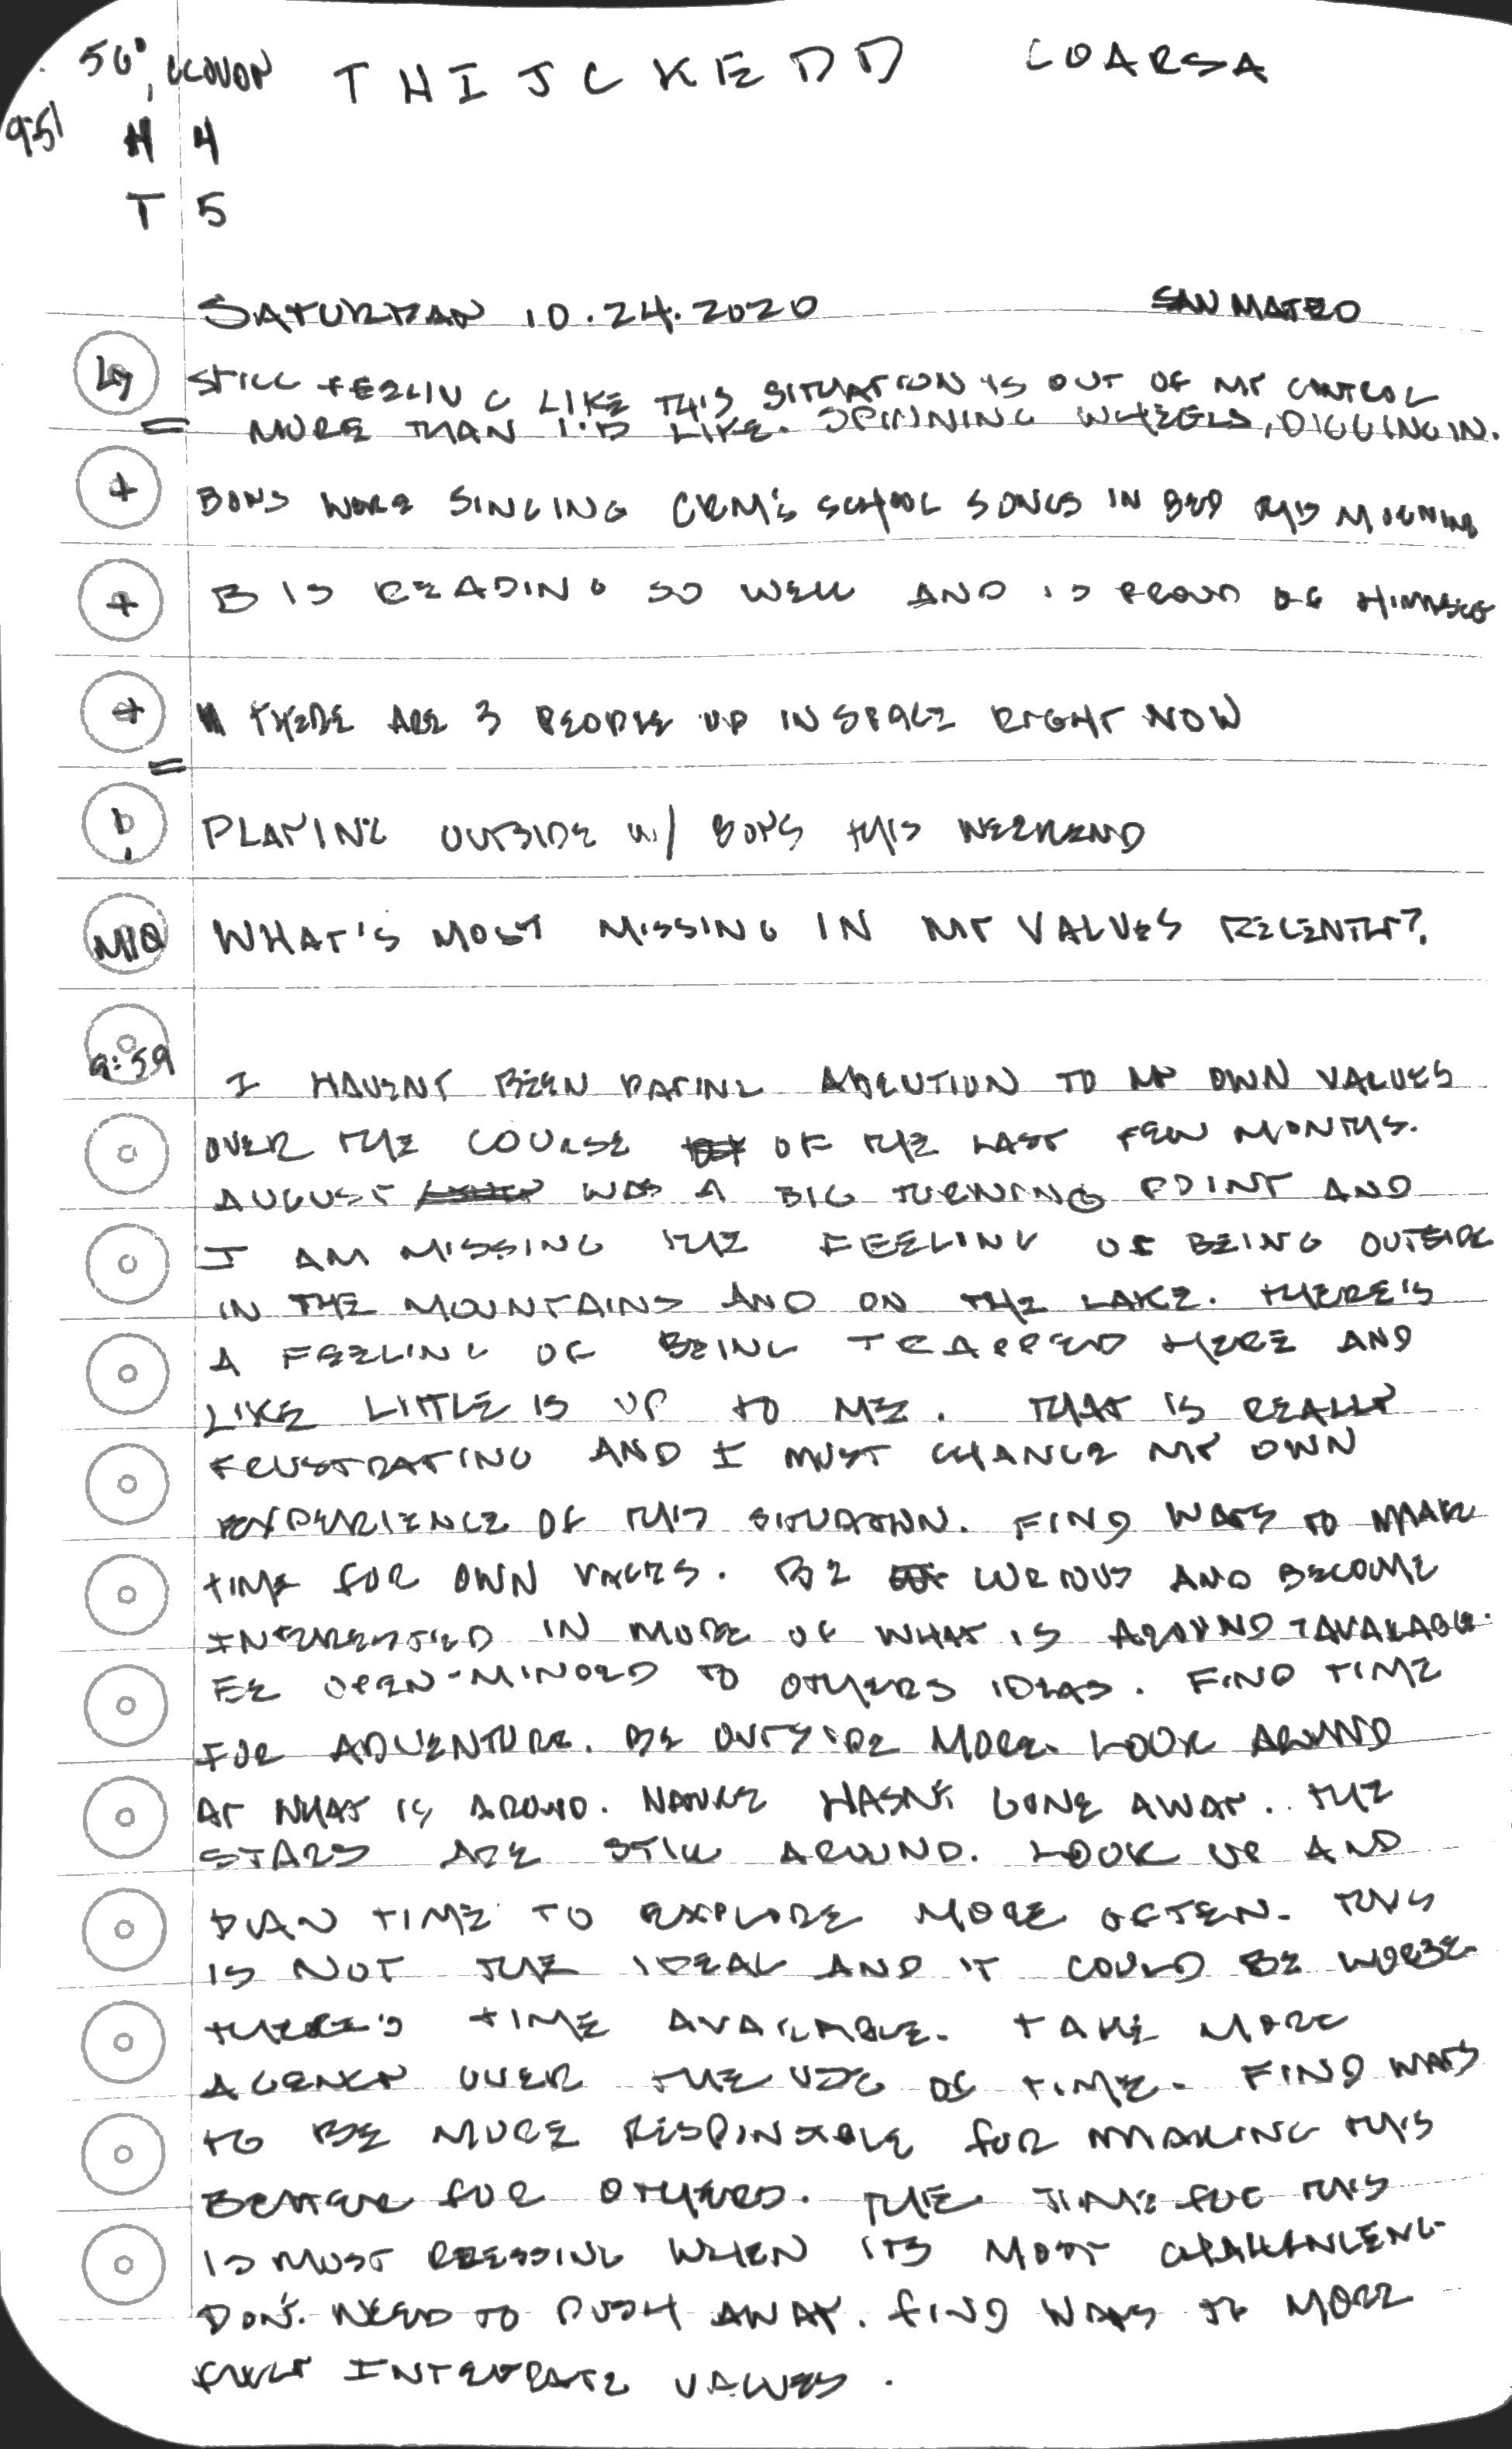 56°, CLOUDY THIJCKEDD COARSA
951 H 4
T 5
SATURDAY 10.24.2020 SAN MATEO
STILL FEELING LIKE THIS SITUATION IS OUT OF MY CONTROL
= MORE THAN I'D LIKE. SPINNING WHEELS, DIGGING IN.
+ BOYS WERE SINGING CRM'S SCHOOL SONGS IN BED THIS MORNING
+ B IS READING SO WELL AND IS PROUD OF HIMSELF
+ THERE ARE 3 PEOPLE UP IN SPACE RIGHT NOW
=
! PLAYING OUTSIDE W/ BOYS THIS WEEKEND
MIQ WHAT'S MOST MISSING IN MY VALUES RECENTLY?
9:59
I HAVENT BEEN PAYING ATTENTION TO MY OWN VALUES
OVER THE COURSE OF THE LAST FEW MONTHS.
AUGUST WAS A BIG TURNING POINT AND
I AM MISSING THE FEELING OF BEING OUTSIDE
IN THE MOUNTAINS AND ON THE LAKE. THERE'S
A FEELING OF BEING TRAPPED HERE AND
LIKE LITTLE IS UP TO ME. THAT IS REALLY
FRUSTRATING AND I MUST CHANGE MY OWN
EXPERIENCE OF THIS SITUATION. FIND WAYS TO MAKE
TIME FOR OWN VALUES. BE CURIOUS AND BECOME
INTERESTED IN MORE OF WHAT IS AROUND + AVAILABLE.
BE OPEN-MINDED TO OTHERS IDEAS. FIND TIME
FOR ADVENTURE. BE OUTSIDE MORE. LOOK AROUND
AT WHAT IS AROUND. NATURE HASN'T GONE AWAY. THE
STARS ARE STILL AROUND. LOOK UP AND
PLAN TIME TO EXPLORE MORE OFTEN. THIS
IS NOT THE IDEAL AND IT COULD BE WORSE.
THERE'S TIME AVAILABLE. TAKE MORE
AGENCY OVER THE USE OF TIME. FIND WAYS
TO BE MORE RESPONSIBLE FOR MAKING THIS
BETTER FOR OTHERS. THE TIME FOR THIS
IS MOST PRESSING WHEN ITS MOST CHALLENGING
DON'T NEED TO PUSH AWAY. FIND WAYS TO MORE
FULLY INTEGRATE VALUES.